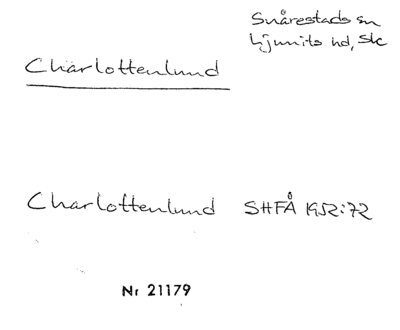 Snårestads sn
Ljunits hd, Sk
Charlottenlund
Charlottenlund SHFÅ 1952:72
Nr 21179